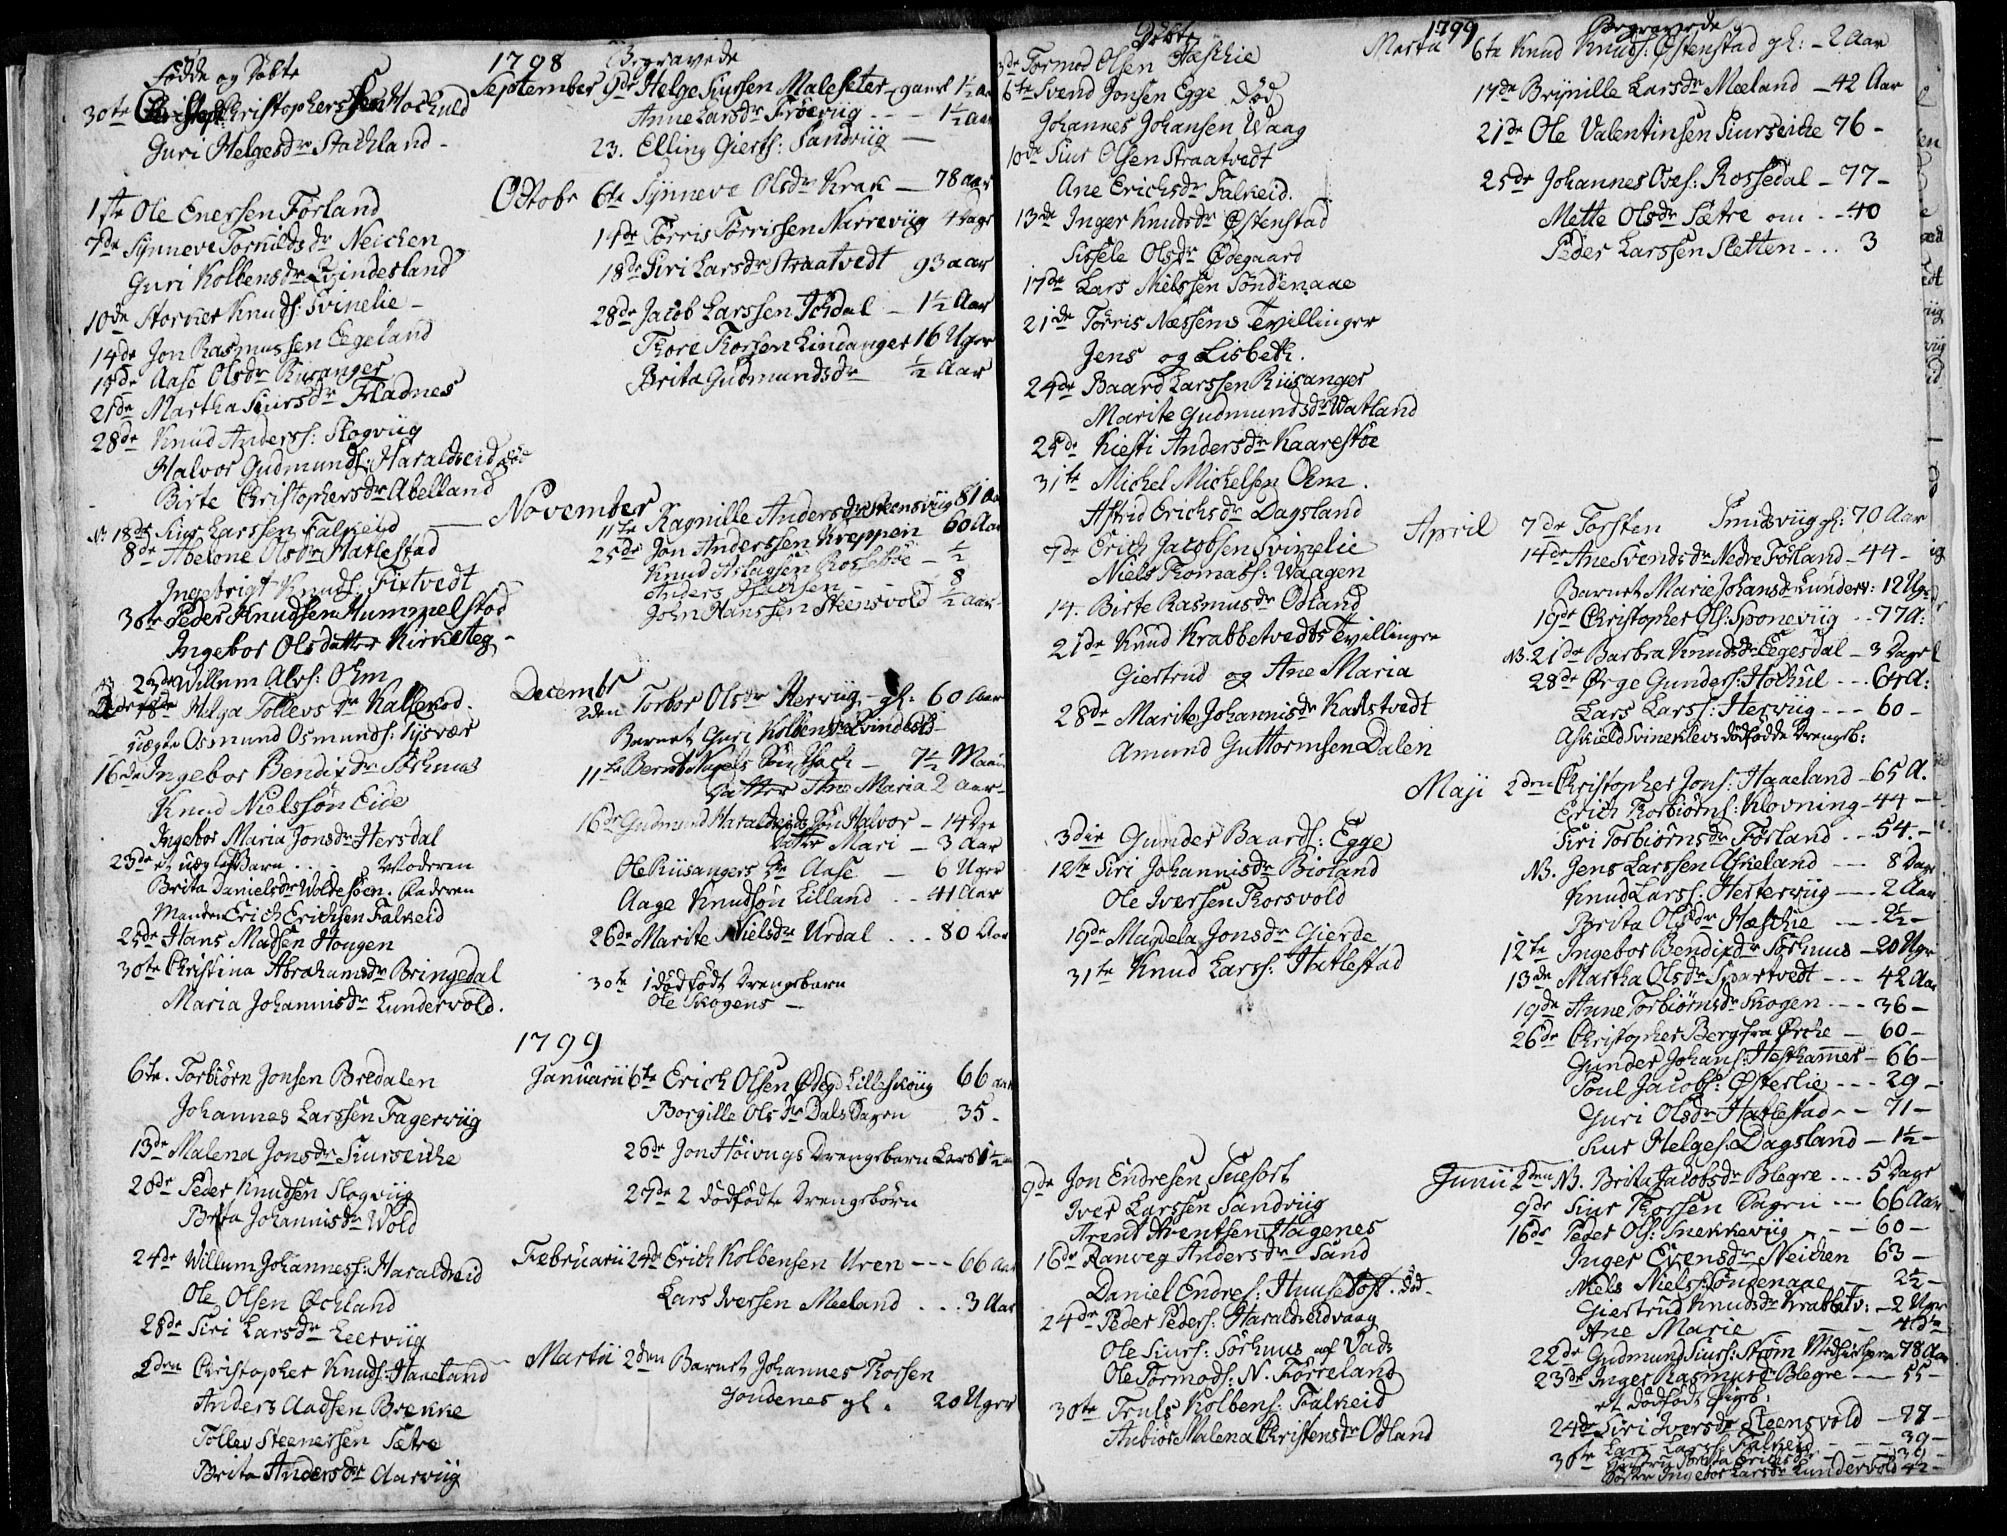 1798
Fødde og Døbte
30te Christophersen Hochuld
Guri Helgesdr Stachland
1ste Ole Enersen Førland
7de Synneve Torkildsdr Neichen
Guri Kolbensdr Qvindesland
10de Storner Knuds: Svinelie
14de Jon Rasmussen Eegeland
19de Aase Olsdr Riisanger
21de Martha Siursdr Fladnes
28de Knud Anderss: Slogviig
Halvor Gudmunds: Haraldseid død
Birte Christophersdr Abelland
NB 18de Siur Larssen Falkeid
8de Abelone Olsdr Hatlestad
Ingebrigt Knuds: Fixtvedt
30te Peder Knudsen Hummelstad
Ingebor Olsdatter Kirkesteg
23de Willum Abrs: Ohm
18de Helga Tollevsdr Kallekod
uægte Osmund Osmunds: Tysvær
16de Ingebor Bendixdr Sørhuus
Knud Nielssøn Eide
Ingebor Maria Jonsdr Hersdal
23de et uægte Barn Moderen
Brita Danielsdr Woldesøen. Faderen
Manden Erich Erichsen Falkeid
25de Hans Madsen Hougen
30te Christina Abrahamsdr Bringedal
Maria Johannisdr Lundervold
6te Torbiørn Jonsen Bredalen
Johannes Larssen Fagerviig
13de Malena Jonsdr Siurseiche
20de Peder Knudsen Slogviig
Brita Johannisdr Wold
24de Willum Johanness: Haraldseid
Ole Olsen Øchland
28de Siri Larsdr Leerviig
2den Christopher Knuds: Haaeland
Anders Aadsen Brekke
Tollev Steenersen Sætre
Brita Andersdr Aarviig
Begravede
September 9de Helge Siurssen Maleseter, gaml 1½ Aar
Anne Larsdr Frøeviig - - 1½ Aar
23. Elling Gierts: Sandviig
Octobr 6te Synneve Olsdr Krak - 78 aar
14de Tørris Tørrissen Narreviig 4 Dage
18de Siri Larsdr Straatvedt 93 aar
28de Jacob Larssen Ichdal - 1½ Aar
Thore Thorsen Lindanger 16 Uger
Brita Gudmundsdr ½ Aar
November
11te Ragnille Andersdr Steensviig 81 Aar
25de Jon Anderssen Kreppen 60 Aar
Knud Aslagsen Rossebøe - ½
Anders - 8
John Hanssen Steensvold ½ aar
Decembr
2den Torbor Olsdr Herviig - gl: 60 Aar
Barnet Guri Kolbensdr Qvindesld
11te Bernt Nagels Søn Isach - 7½ Maan
Datter Ane Maria 2 aar
16de Gudmund Haraldseids Søn Halvor - 14 Dge
Datter Mari - 3 Aar
Ole Riisangers Dr Aase - 6 Uger
Aage Knudsøn Lilland - - 41 Aar
26de Marite Nielsdr Urdal - - - 80 Aar
30te 1 dødfødt Drengebarn
Ole Skogens
1799
Januarii 6te Erich Olsen Ødegd Lilleskoug 66 aar
Borgille Olsdr Dals Dagen 35 -
26de Jon Høivigs Drengebarn Lars 1½
27de 2 dødfødte Drengebørn
Februarii 24de Erich Kolbensen Uren - - - 66 aar
Lars Iversen Meeland - - - 3 Aar
Martii 2den Barnet Johannes Thorsen
Søndenes gl. 20 Uger
1799
Døbte
3de Tormod Olsen Hæschie
6te Svend Jonsen Egge død
Johannes Johansen Waag
10de Siur Olsen Straatvedt
Ane Erichsdr Falkeid.
13de Inger Knudsdr Østenstad
Sissele Olsdr Ødegaard
17de Lars Nielssen Søndenaae
21de Tørris Næssens Tvillinger
Jens og Lisbeth.
24de Baard Larssen Riisanger
Marite Gudmundsdr Watland
25de Kiesti Andersdr Kaarestøe
31te Michel Michelsen Oem.
Astrid Erichsdr Dagsland
7de Erich Jacobsen Svinelie
Niels Thomass: Waagen
14. Birte Rasmusdr Odland
21de Knud Krabbetvedts Tvillinger
Giertrud og Ane Maria
28de Marite Johannisdr Kallstvedt
Amund Guttormsen Dalen
3die Gunder Baards: Egge
12te Siri Johannisdr Bioland
Ole Iversen Thorsvold
19de Magdela Jonsdr Gierde
31te Knud Larss: Hatlestad
9de Jon Endresen Tuesort
Iver Larssen Sandviig
Arent Arentsen Hagenes
16de Ranveg Andersdr Sand
Daniel Endres: Huusetoft. død
24de Peder Peders: Haraldseidvaag
Ole Siurs: Sørhuus af Vads
Ole Tormods: N. Førreland
30te Truls Kolbens: Falkeid
Anbior Malena Christensdr Odland
Begravede
Martii 6te Knud Knuds: Østenstad gl: - 2 Aar
17de Brynille Larsdr Meeland - 42 Aar
21de Ole Valentinsen Siurseiche 76 -
25de Johannes Oes: Rossedal - 77 -
Mette Olsdr Sætre om - - 40
Peder Larssen Sletten - - - 3
April 7de Torsten Smidsviig gl: 70 Aar
14de Ane Svendsdr Nedre Førland - 44 -
Barnet Marie Johansdr Lunderv: 12 Uger
19de Christopher Ols: Sponeviig - - 77 A:
NB. 21de Barbra Knudsdr Eegesdal - 3 Dage
28de Ørge Gunders: Hochul - - - 64 A:
Lars Larss: Herviig - - - 60 -
Askield Svineklevs dødfødde Drengeb:
Maji 2den Christopher Jons: Haaeland - 65 A.
Erich Thorbiørns: Klovning - 44 -
Siri Torbiørnsdr Førland - - 54. -
NB. Jens Larssen Askeland - - - 8 Dage
Knud Larss: Hesterviig - - - 2 Aar
Brita Olsdr Hæschie - - 2½ -
12te Ingebor Bendixdr Sørhuus - 20 Uger
13de Martha Olsdr Svartvedt - - - 42 Aar
19de Anne Torbiørnsdr Skogen - - - 36 -
26de Christopher Berg fra Ørche - 60 -
Gunder Johans: Hesthammer - 66 -
Poul Jacobs: Østerlie - - - 29 -
Guri Olsdr Hatlestad - - 71 -
Siur Helges: Dagsland - 1½ -
Junii 2den NB. Brita Jacobsdr Blegre - - - 5 Dage
9de Siur Thorssen Dagen - - 66 Aar
16de Peder Ols: Snekkeviig - - 60 -
Inger Evensdr Neichen 63 -
Niels Nielss: Søndenaae - 2½ -
Giertrud Knudsdr Krabbetv: - 2 Uger
Ane Marie
22de Gudmund Siurs: Strøm 78 Aar
23de Inger Rasmusdr Blegre - - 55 -
et dødfødt Pigeb:
24de Siri Iversdr Steensvold - 77 -
30te Lars Larss: Falkeid - - - 39 -
Ingebor Larsdr Lundervold 42 -